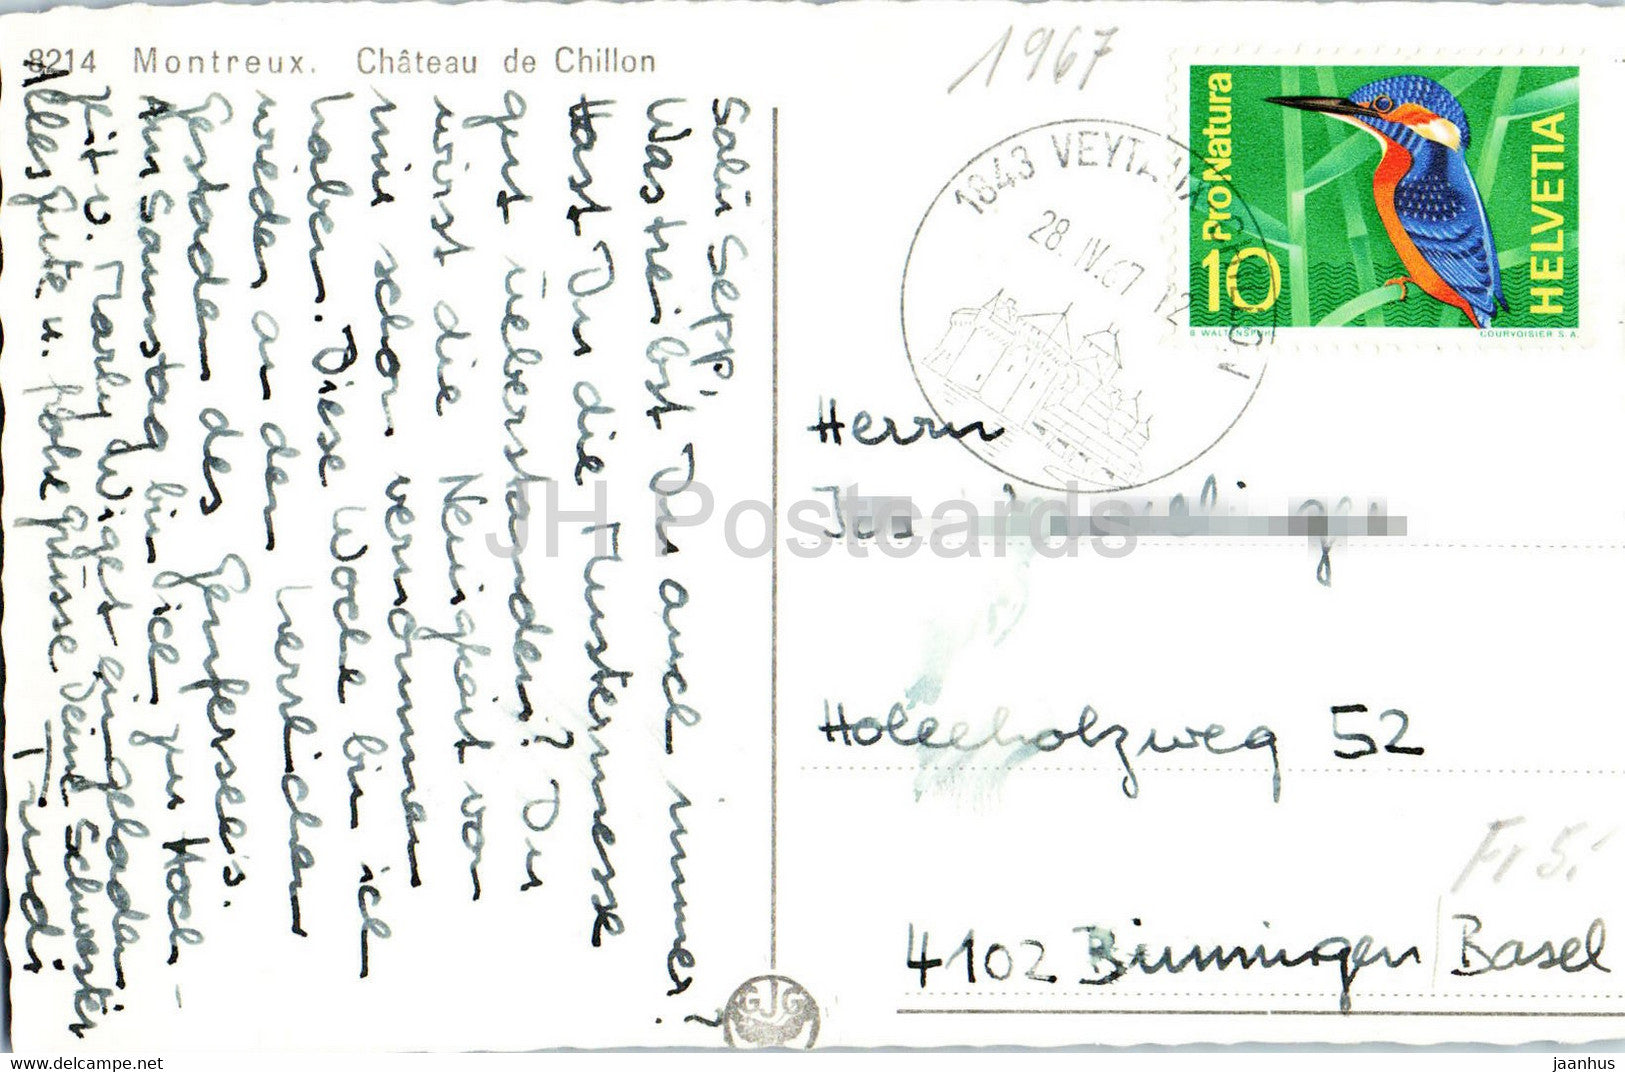 8214 Montreux. Château de Chillon
Salü Sepp,
Was treibst Du auch immer?
Hast Du die Mustermesse
gut überstanden? Du
wirst die Neuigkeit von
mir schon vernommen
haben. Diese Woche bin ich
wieder an den herrlichen
Gestaden des Genfersee's.
Am Samstag bin ich zur Hoch-
zit v. Marly Wiget eingeladen
Alles Gute u. frohe Grüsse Deine Schwester
Trudi
1967
1843 VEYTAUX
28.IV.67 12
ProNatura
10
HELVETIA
COURVOISIER S.A.
Herrn
Holeeholzweg 52
Fr 5.-
4102 Binningen / Basel
GJG
JH Postcards
www.delcampe.net
jaanhus